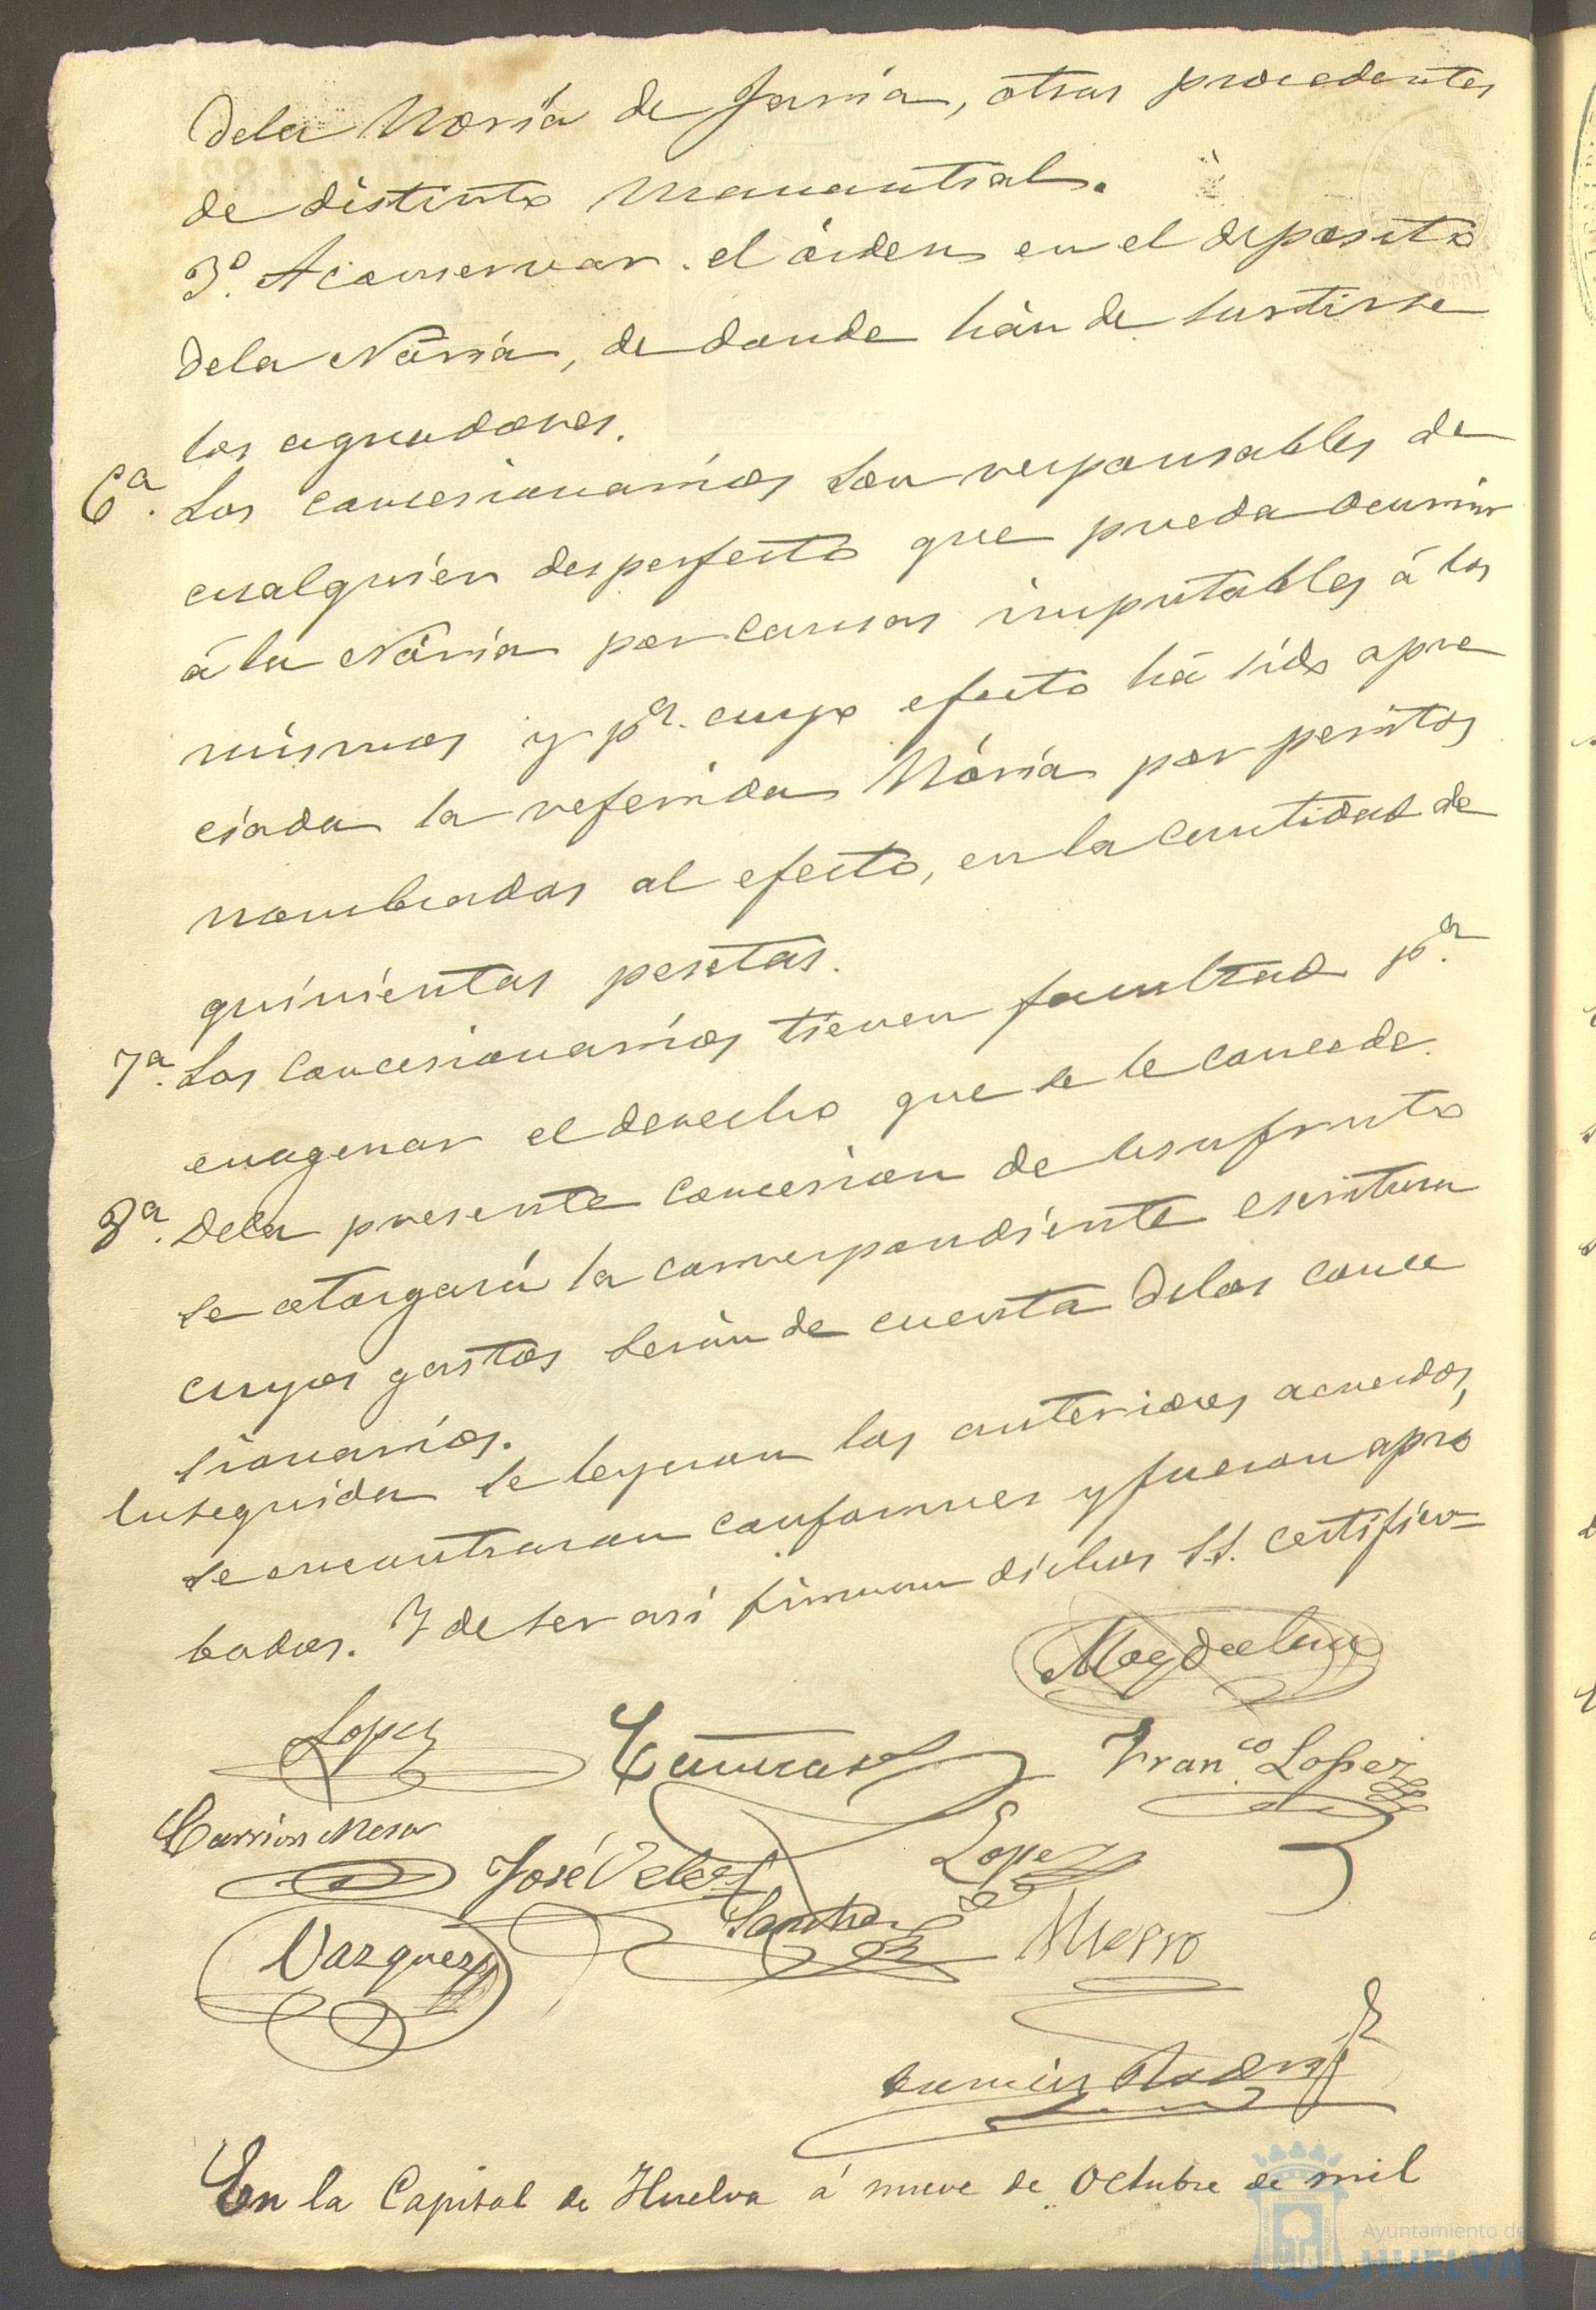 dela Noria de Jamia, otras procedentes
de distinto manantial.
3º. A conservar el órden en el deposito
dela Nória, de donde hán de surtirse
los aguadores.
6ª. Los concesionarios son responsables de
cualquier desperfecto que pueda ocurrir
á la Nória por causas imputables á los
mismos y pª. cuyo efecto há sido apre
ciada la referida Nória por peritos
nombrados al efecto, en la cantidad de
quinientas pesetas.
7ª. Los concesionarios tienen facultad pª.
enagenar el derecho que se le concede.
8ª. Dela presente concesion de usufruto
se otorgará la correspondiente escritura
cuyos gastos serán de cuenta delos conce
sionarios.
Enseguida se leyeron los anteriores acuerdos,
se encontraron conformes y fueron apro
bados. Y de ser asi firman dichos SS. certifico=
Magdalena
Lopez
Franco. Lopez
Carrion Mesa
José Velez
Lopez
Sanchez
Vazquez
En la Capital de Huelva á nueve de Octubre de mil
Ayuntamiento de
HUELVA